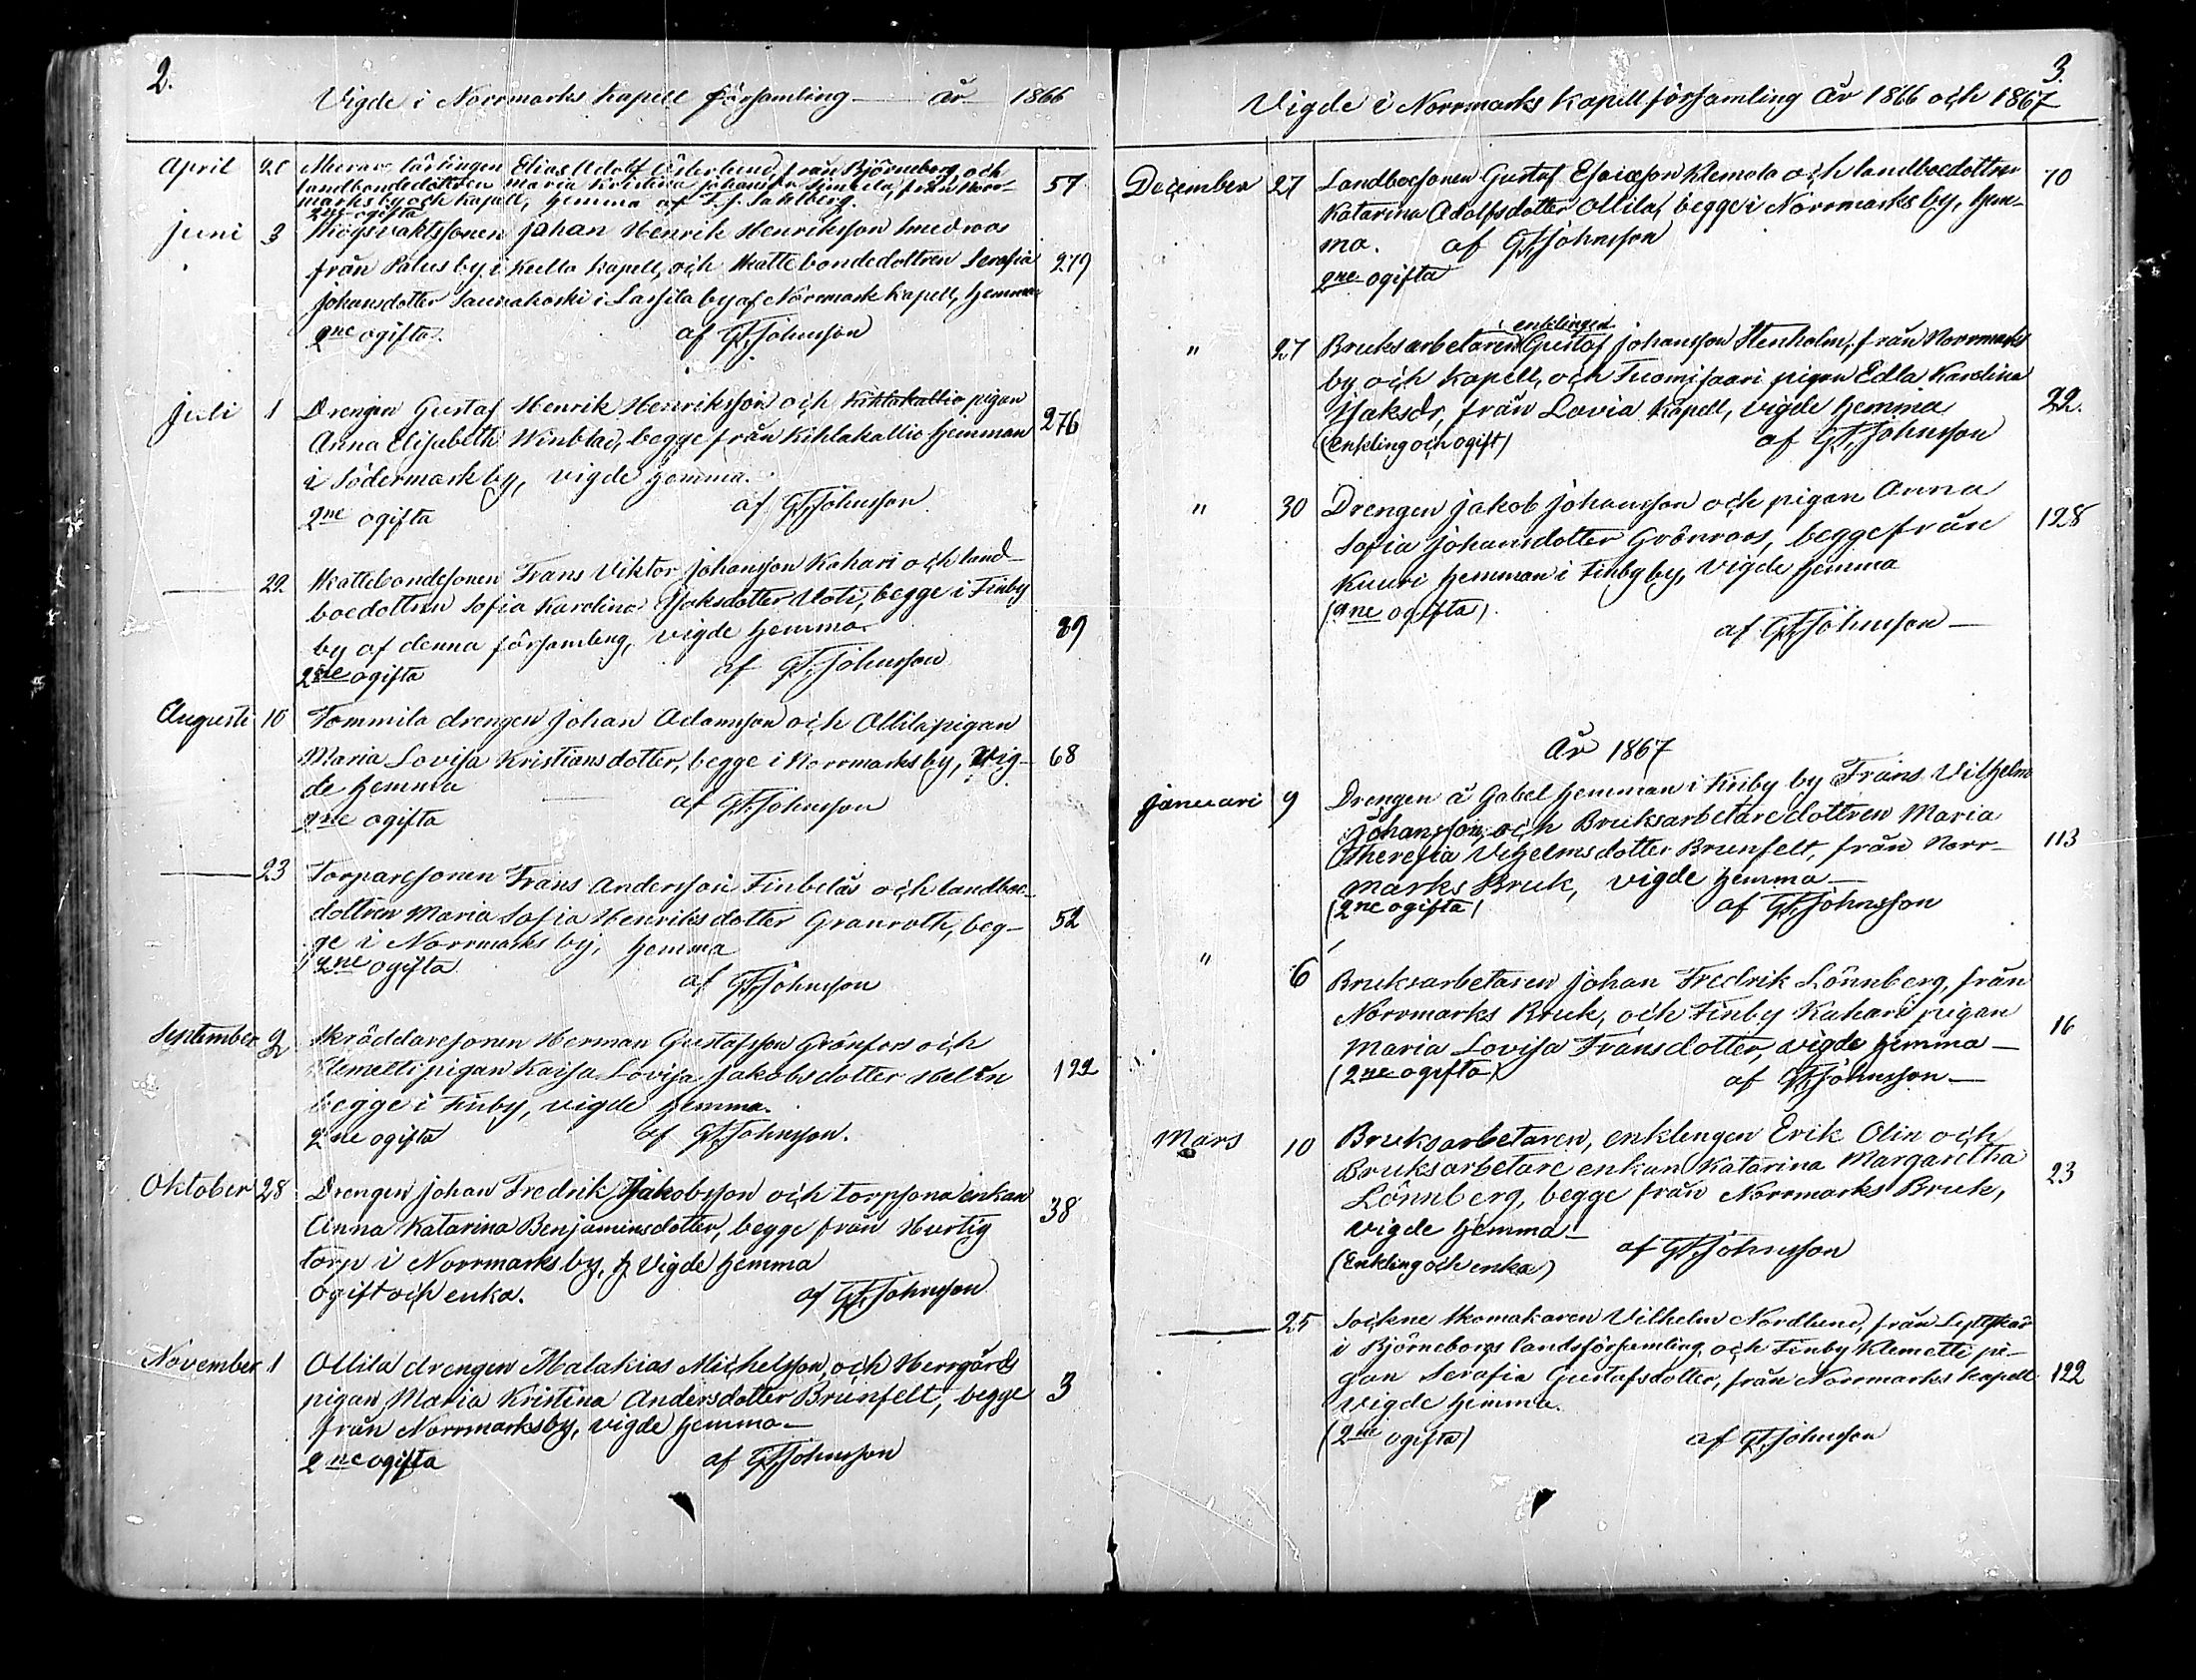 2.
Vigde i Norrmarks Kapell församling — år 1866
April 26 Murare lärlingen Elias Adolf Österlund, från Björneborg, och
landbondedottren Maria Kristina Johansdr Simula, från Norr-
marks by och Kapell, hemma af Sahlberg. 57
2ne ogifta
Juni 3 Skogsvaktssonen Johan Henrik Henriksson Smedroos
från Palus by i Kulla Kapell, och Skattebondedottren Serafia 279
Johansdotter Saunakoski i Lassila by af Norrmark Kapell, hemma
2ne ogifta. af GFJohnsson
Juli 1 Drengen Gustaf Henrik Henriksson och Kihlakallio pigan
Anna Elisabeth Winblad, begge från Kihlakallio hemman 276
i Södermark by, vigde hemma.
2ne ogifta af GFJohnsson
— 22 Skattebondesonen Frans Viktor Johansson Kahari och land-
boedottren Sofia Karolina Isaksdotter Uoti, begge i Finby
by af denna församling, vigde hemma. 89
2ne ogifta af GFJohnsson
Augusti 10 Tommila drengen Johan Adamsson och Ollila pigan
Maria Lovisa Kristiansdotter, begge i Norrmarks by, vig- 68
de hemma af GFJohnsson
2ne ogifta
— 23 Torparesonen Frans Andersson Finbelås och landboe-
dottren Maria Sofia Henriksdotter Granroth, beg- 52
ge i Norrmarks by, hemma
2ne ogifta af GFJohnsson
September 2 Skräddaresonen Herman Gustafsson Grönfors och
Klemetti pigan Kajsa Lovisa Jakobsdotter Helen 122
begge i Finby, vigde hemma.
2ne ogifta af GFJohnsson.
Oktober 28 Drengen Johan Fredrik Jakobsson och torpsona enkan
Anna Katarina Benjaminsdotter, begge från Hurtig 38
torp i Norrmarks by, Vigde hemma
ogift och enka. af GFJohnsson
November 1 Ollila drengen Malakias Michelsson, och Herrgårds
pigan Maria Kristina Andersdotter Brunfelt, begge 3
från Norrmarks by, vigde hemma—
2ne ogifta af GFJohnsson
3.
Vigde i Norrmarks Kapell församling År 1866 och 1867
December 27 Landboesonen Gustaf Esaiæson Klemola och landboedottren 70
Katarina Adolfsdotter Ollila, begge i Norrmarks by, hem-
ma. af GFJohnsson
2ne ogifta
enklingen
" 27 Bruksarbetaren Gustaf Johansson Stenholm, från Norrmarks
by och Kapell, och Tuomisaari pigan Edla Karolina
Isaksdr, från Lavia Kapell, vigde hemma 22.
(enkling och ogift) af GFJohnsson
" 30 Drengen Jakob Johansson och pigan Anna
Sofia Johansdotter Grönroos, begge från 128
Kuuri hemman i Finby by, vigde hemma
(2ne ogifta)
af GFJohnsson —
År 1867
Januari 9 Drengen å Gabel hemman i Finby by Frans Vilhelm
Johansson, och Bruksarbetare dottren Maria
Theresia Vilhelmsdotter Brunfelt, från Norr- 113
marks Bruk, vigde hemma—
(2ne ogifta) af GFJohnsson
" 6 Bruksarbetaren Johan Fredrik Lönnberg, från
Norrmarks Bruk, och Finby Kahari pigan 16
Maria Lovisa Fransdotter, vigde hemma—
(2ne ogifta) af GFJohnsson—
Mars 10 Bruksarbetaren, enklingen Erik Olin och
Bruksarbetare enkan Katarina Margaretha 23
Lönnberg, begge från Norrmarks Bruk,
vigde hemma—
(Enkling och enka) af GFJohnsson
— 25 Sockne skomakaren Vilhelm Nordlund, från Lyttskär
i Björneborgs landsförsamling och Finby Klemetti pi-
gan Serafia Gustafsdotter, från Norrmarks Kapell 122
vigde hemma.
(2ne ogifta) af GFJohnsson